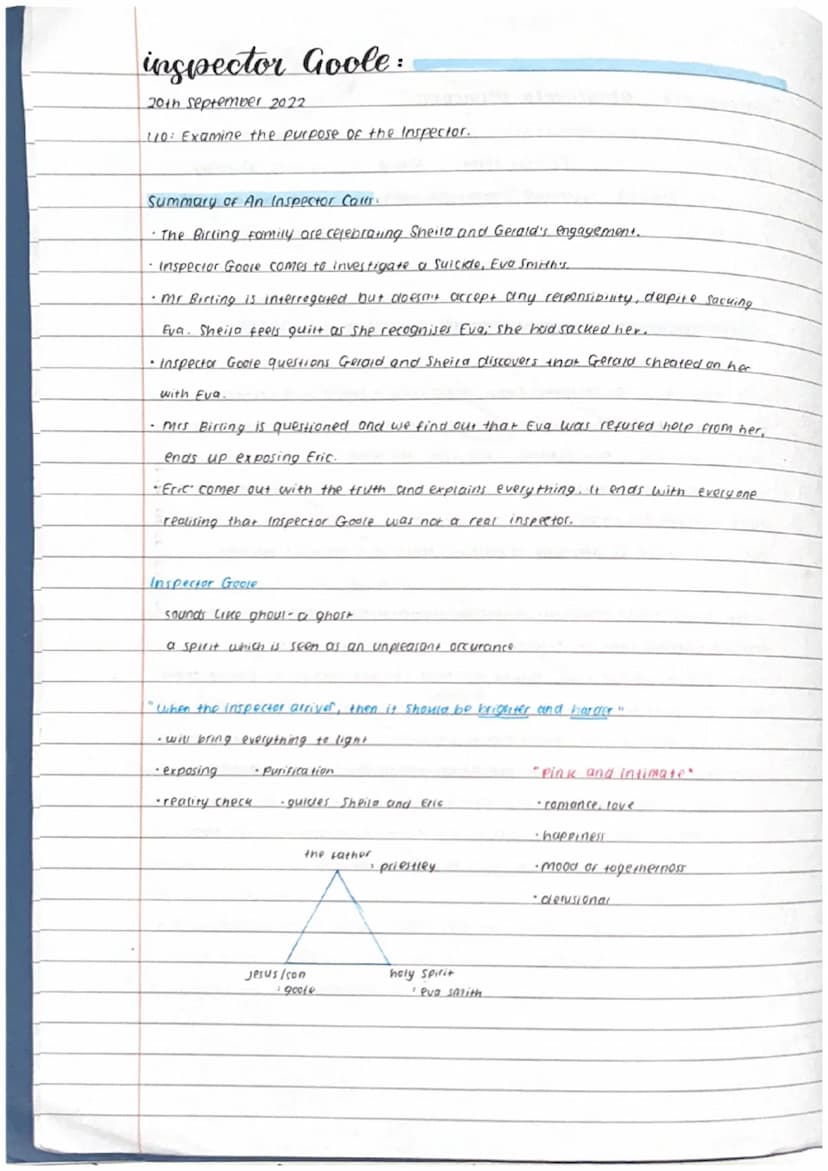 inspector Goole:
20th September 2022
LO: Examine the purpose of the Inspector.
Summary of An Inspector Calls.
· The Birling family are celebrating Sheila and Gerald's engagement.
· Inspector Goole comes to investigate a suicide, Eva Smith's.
· Mr Birling is interrogated but doesn't accept any responsibility, despite sacking
Eva. Sheila feels guilt as she recognises Eva; she had sacked her.
· Inspector Goole questions Gerald and Sheila discovers that Gerald cheated on her
with Eva.
· Mrs Birling is questioned and we find out that Eva was refused help from her,
ends up exposing Eric.
· Eric comes out with the truth and explains everything. It ends with everyone
realising that Inspector Goole was not a real inspector.
Inspector Goole
sounds like ghoul - a ghost
a spirit which is seen as an unpleasant occurance
"when the inspector arrives, then it should be brighter and harder"
· will bring everything to light
· exposing · purification
"pink and intimate"
· reality check · guides Sheila and Eric
· romance, love
· happiness
the father
· priestley
· mood of togetherness
· delusional
Jesus/son
holy spirit
· goole
· eva smith